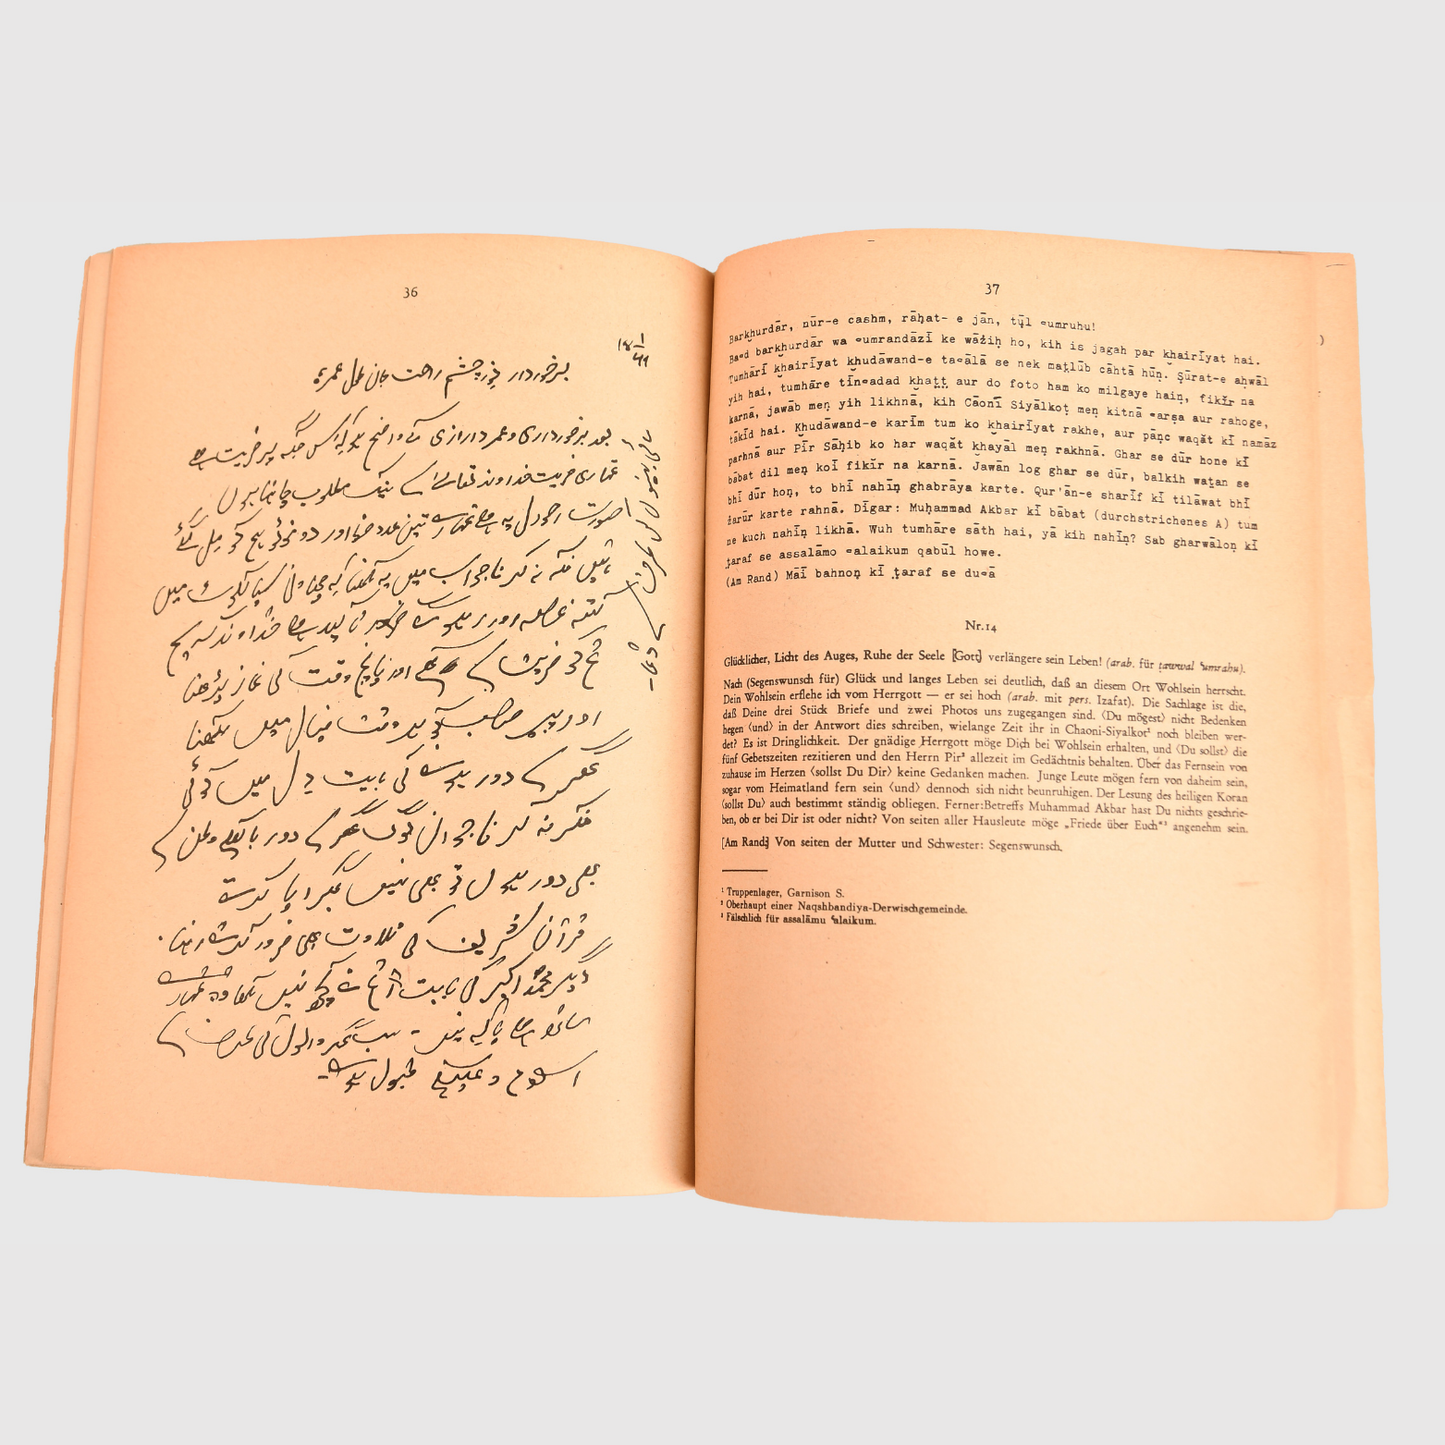 36
۱۸ ۱/۴۱
برخوردار نورچشم راحت جان طول عمرہ
بعد برخورداری و عمردرازی کے واضح ہو کہ اس جگہ پر خریت ہے
تماری خریت خداوند تعالےٰ سے نیک مطلوب چاہتا ہوں
صورت احوال یہ ہے تمھارے تین عدد خط اور دو فوٹو ہم کو مل گئے
ہیں فکر نہ کرنا جواب میں یہ لکھنا کہ چاونی سیالکوٹ میں
کتنہ عرصہ اور رہوگے تاکید ہے خداوند کریم
تم کو خریت سے رکھے اور پانچ وقت کی نماز پڑھنا
اور پیر صاحب کو ہر وقت خیال میں رکھنا
گھر سے دور ہونے کی بابت دل میں کوئی
فکر نہ کرنا جوان لوگ گھر سے دور بلکہ وطن سے
بھی دور ہوں تو بھی نہیں گھبرایا کرتے
قرآن شریف کی تلاوت بھی ضرور کرتے رہنا۔
دیگر محمد اکبر کی بابت تم نے کچھ نہیں لکھا وہ تمہارے
ساتھ ہے یا کہ نہیں - سب گھر والوں کی طرف سے
اسلام و علیکم قبول ہووے۔
مائی بہنوں کی طرف سے دعا۔
37
Barkhurdār, nūr-e cashm, rāḥat- e jān, ṭūl ʿumruhu!
Baʿd barkhurdār wa ʿumrandāzī ke wāẓiḥ ho, kih is jagah par khairīyat hai.
Tumhārī khairīyat khudāwand-e taʿālā se nek maṭlūb cāhtā hūṇ. Ṣūrat-e aḥwāl
yih hai, tumhāre tīnʿadad khaṭṭ aur do foto ham ko milgaye haiṇ, fikir na
karnā, jawāb meṇ yih likhnā, kih Cāonī Siyālkoṭ meṇ kitnā ʿarṣa aur rahoge,
tākīd hai. Khudāwand-e karīm tum ko khairīyat rakhe, aur pāṇc waqăt kī namāz
parhnā aur Pīr Sāḥib ko har waqăt khayāl meṇ rakhnā. Ghar se dūr hone kī
bābat dil meṇ koī fikir na karnā. Jawān log ghar se dūr, balkih waṭan se
bhī dūr hoṇ, to bhī nahīṇ ghabrāya karte. Qur'ān-e sharīf kī tilāwat bhī
ẓarūr karte rahnā. Dīgar: Muḥammad Akbar kī bābat (durchstrichenes A) tum
ne kuch nahīṇ likhā. Wuh tumhāre sāth hai, yā kih nahīṇ? Sab gharwāloṇ kī
ṭaraf se assalāmo ʿalaikum qabūl howe.
(Am Rand) Māī bahnoṇ kī ṭaraf se duʿā
Nr.14
Glücklicher, Licht des Auges, Ruhe der Seele [Gott] verlängere sein Leben! (arab. für ṭawwal ʿumrahu).
Nach (Segenswunsch für) Glück und langes Leben sei deutlich, daß an diesem Ort Wohlsein herrscht.
Dein Wohlsein erflehe ich vom Herrgott — er sei hoch (arab. mit pers. Izafat). Die Sachlage ist die,
daß Deine drei Stück Briefe und zwei Photos uns zugegangen sind. ⟨Du mögest⟩ nicht Bedenken
hegen ⟨und⟩ in der Antwort dies schreiben, wielange Zeit ihr in Chaoni-Siyalkot¹ noch bleiben wer-
det? Es ist Dringlichkeit. Der gnädige Herrgott möge Dich bei Wohlsein erhalten, und ⟨Du sollst⟩ die
fünf Gebetszeiten rezitieren und den Herrn Pir² allezeit im Gedächtnis behalten. Über das Fernsein von
zuhause im Herzen ⟨sollst Du Dir⟩ keine Gedanken machen. Junge Leute mögen fern von daheim sein,
sogar vom Heimatland fern sein ⟨und⟩ dennoch sich nicht beunruhigen. Der Lesung des heiligen Koran
⟨sollst Du⟩ auch bestimmt ständig obliegen. Ferner:Betreffs Muhammad Akbar hast Du nichts geschrie-
ben, ob er bei Dir ist oder nicht? Von seiten aller Hausleute möge „Friede über Euch“³ angenehm sein.
[Am Rand:] Von seiten der Mutter und Schwester: Segenswunsch.
¹ Truppenlager, Garnison S.
² Oberhaupt einer Naqshbandiya-Derwischgemeinde.
³ Fälschlich für assalāmu ʿalaikum.